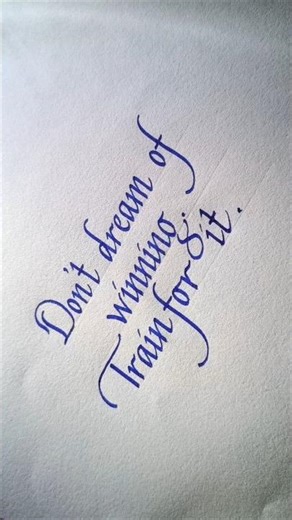 Don't dream of
winning.
Train for it.